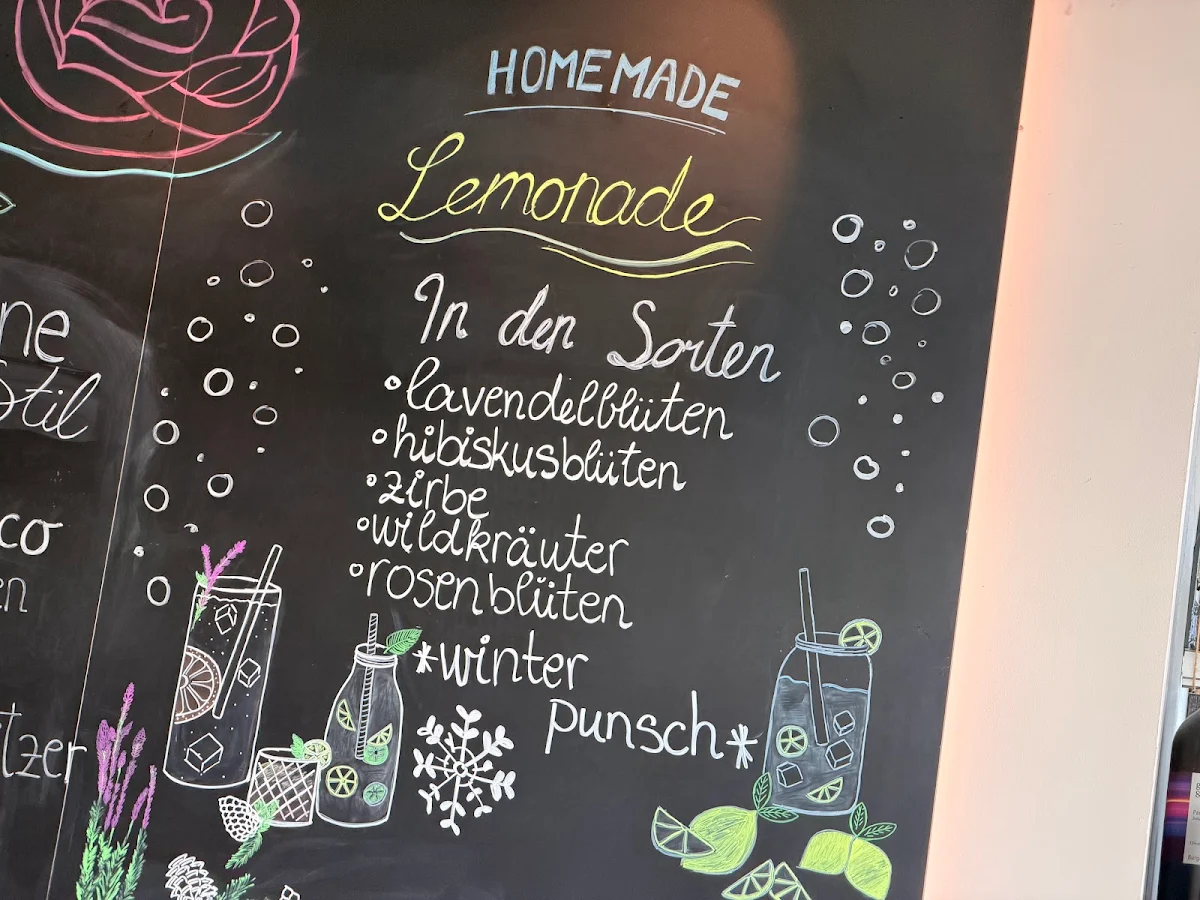 HOMEMADE
Lemonade
In den Sorten
lavendelblüten
hibiskusblüten
zirbe
wildkräuter
rosenblüten
*winter
punsch*
ne
Stil
co
en
tzer